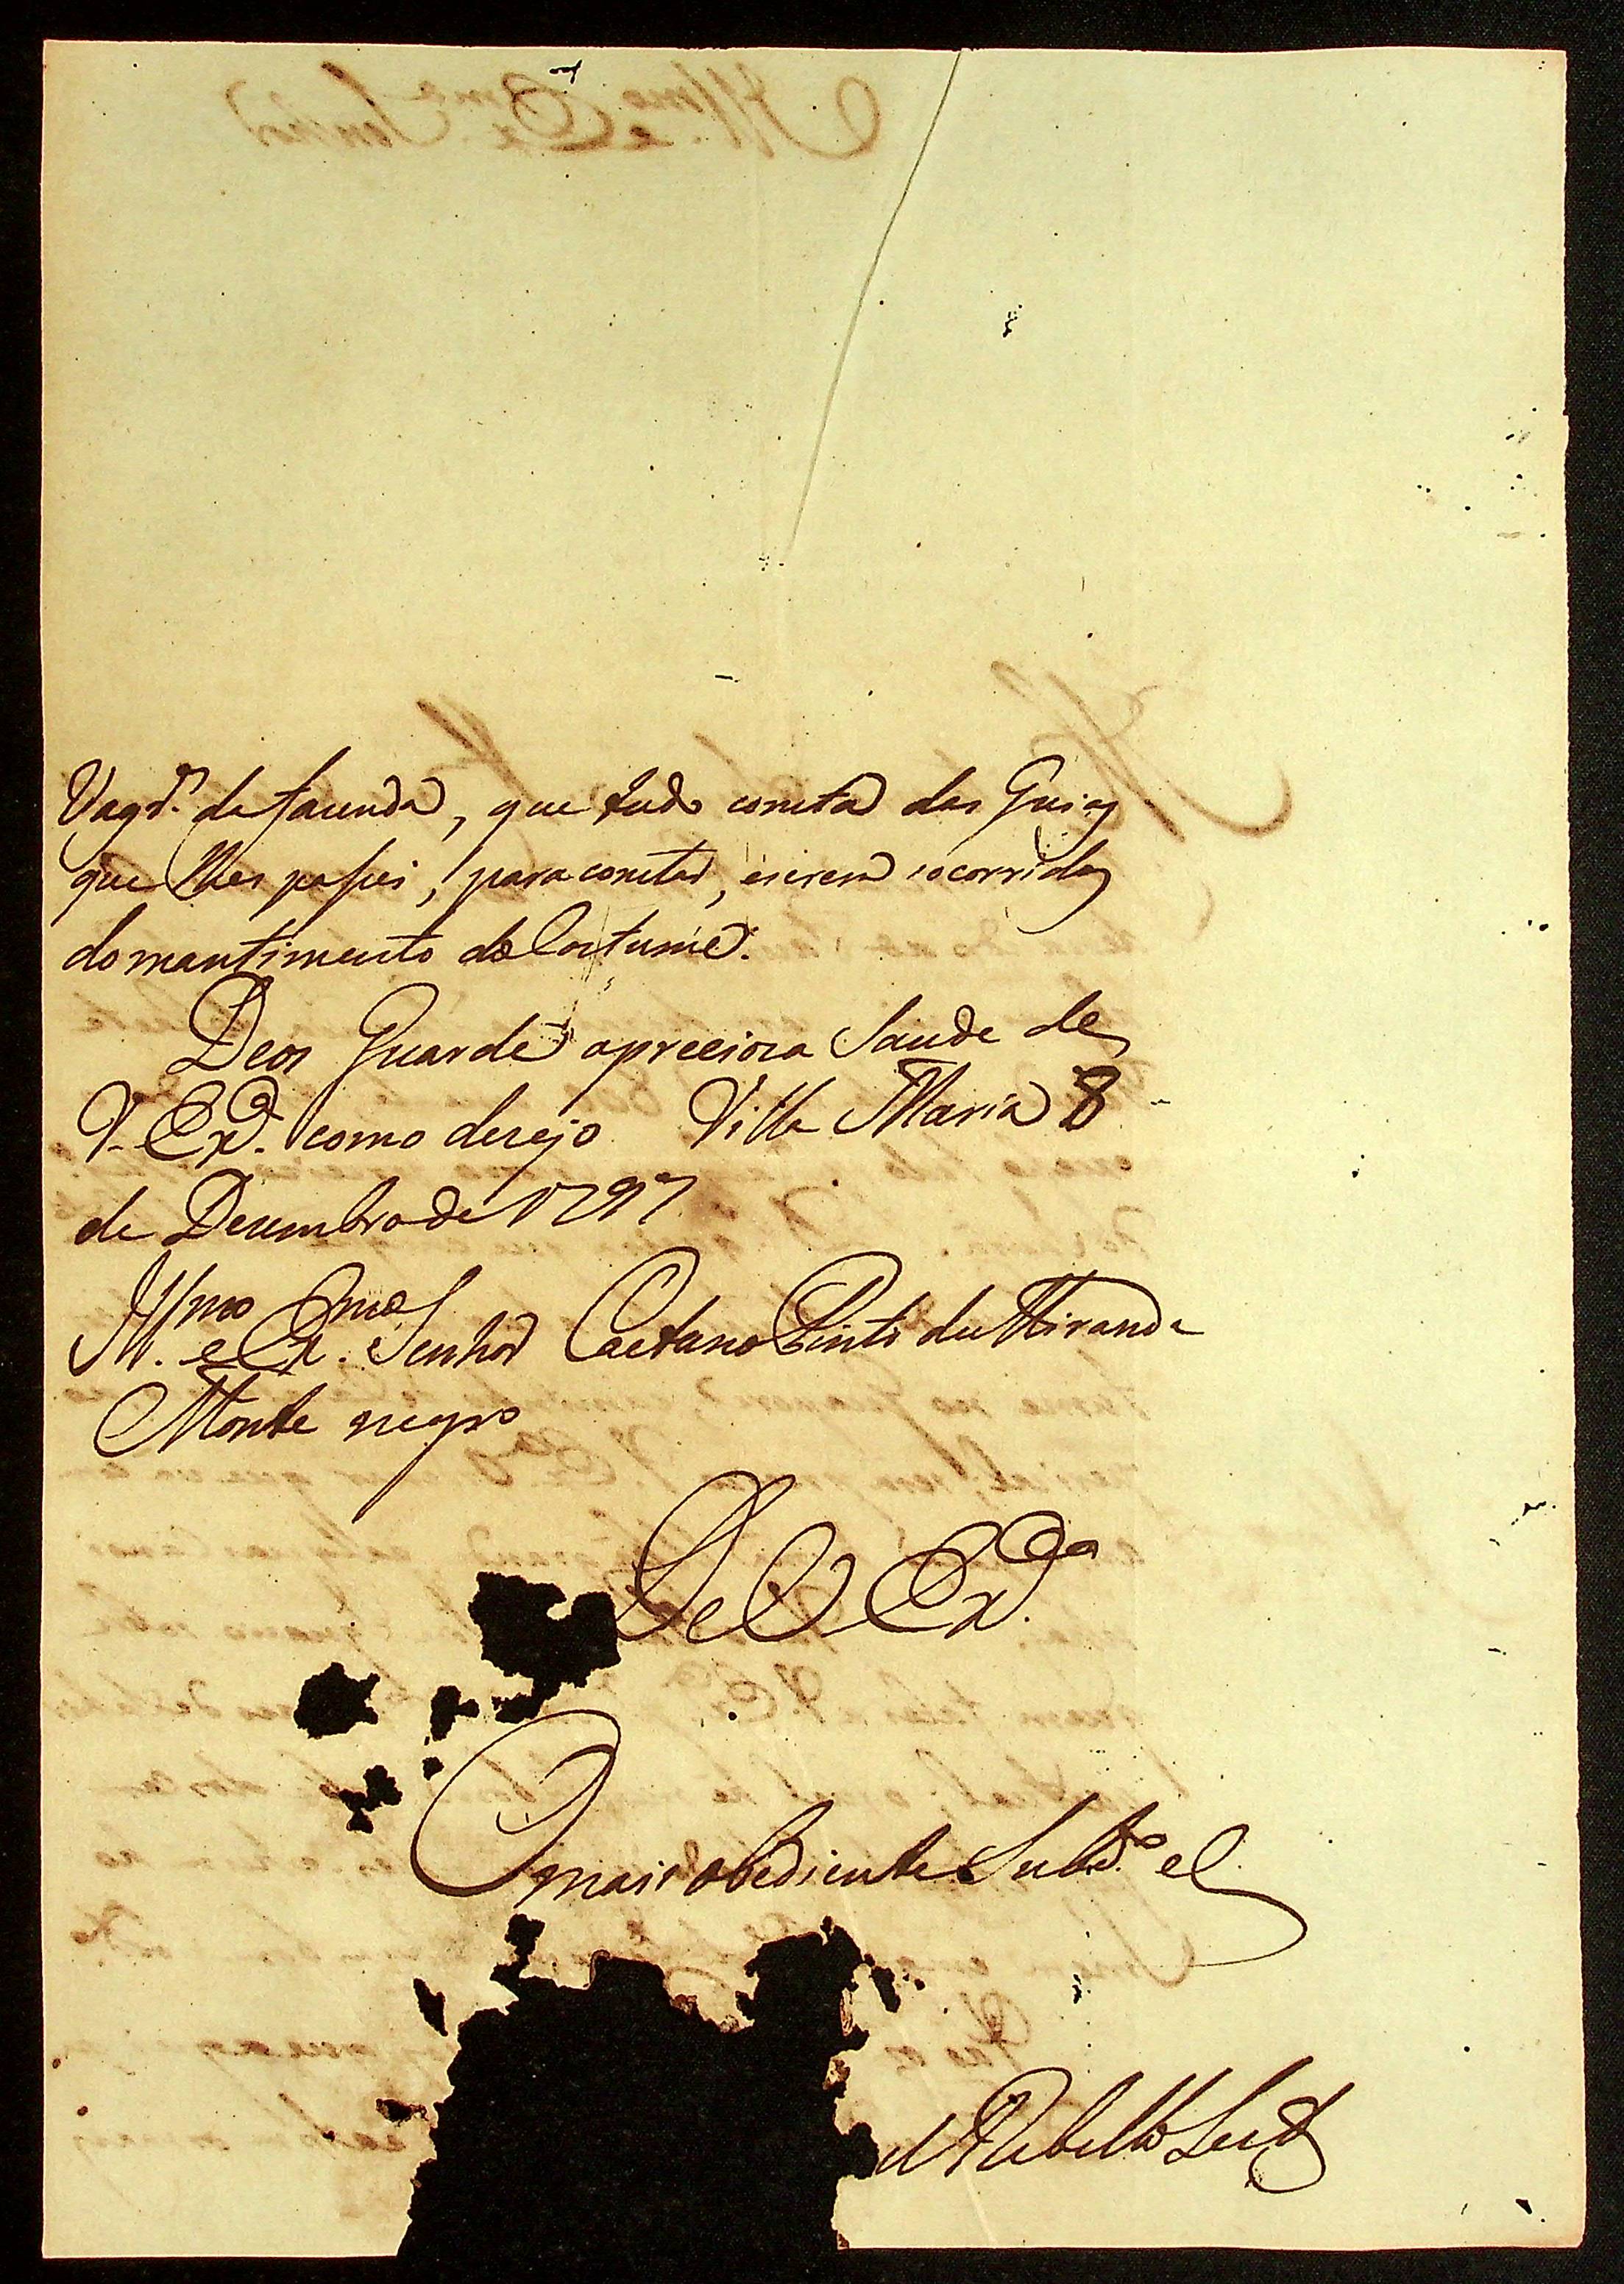 de fazenda, que tudo consta das Guias
que lhes passei, para constar, e serem socorridos
do mantimento do Costume.
Deos Guarde a precioza Saude de
V. Exª. como dezejo Villa Maria 8
de Dezembro de 1797
Illmo e Exmo Senhor Caetano Pinto de Miranda
Monte negro
De V Exª
O mais obediente Subdº
el Rebello Leite